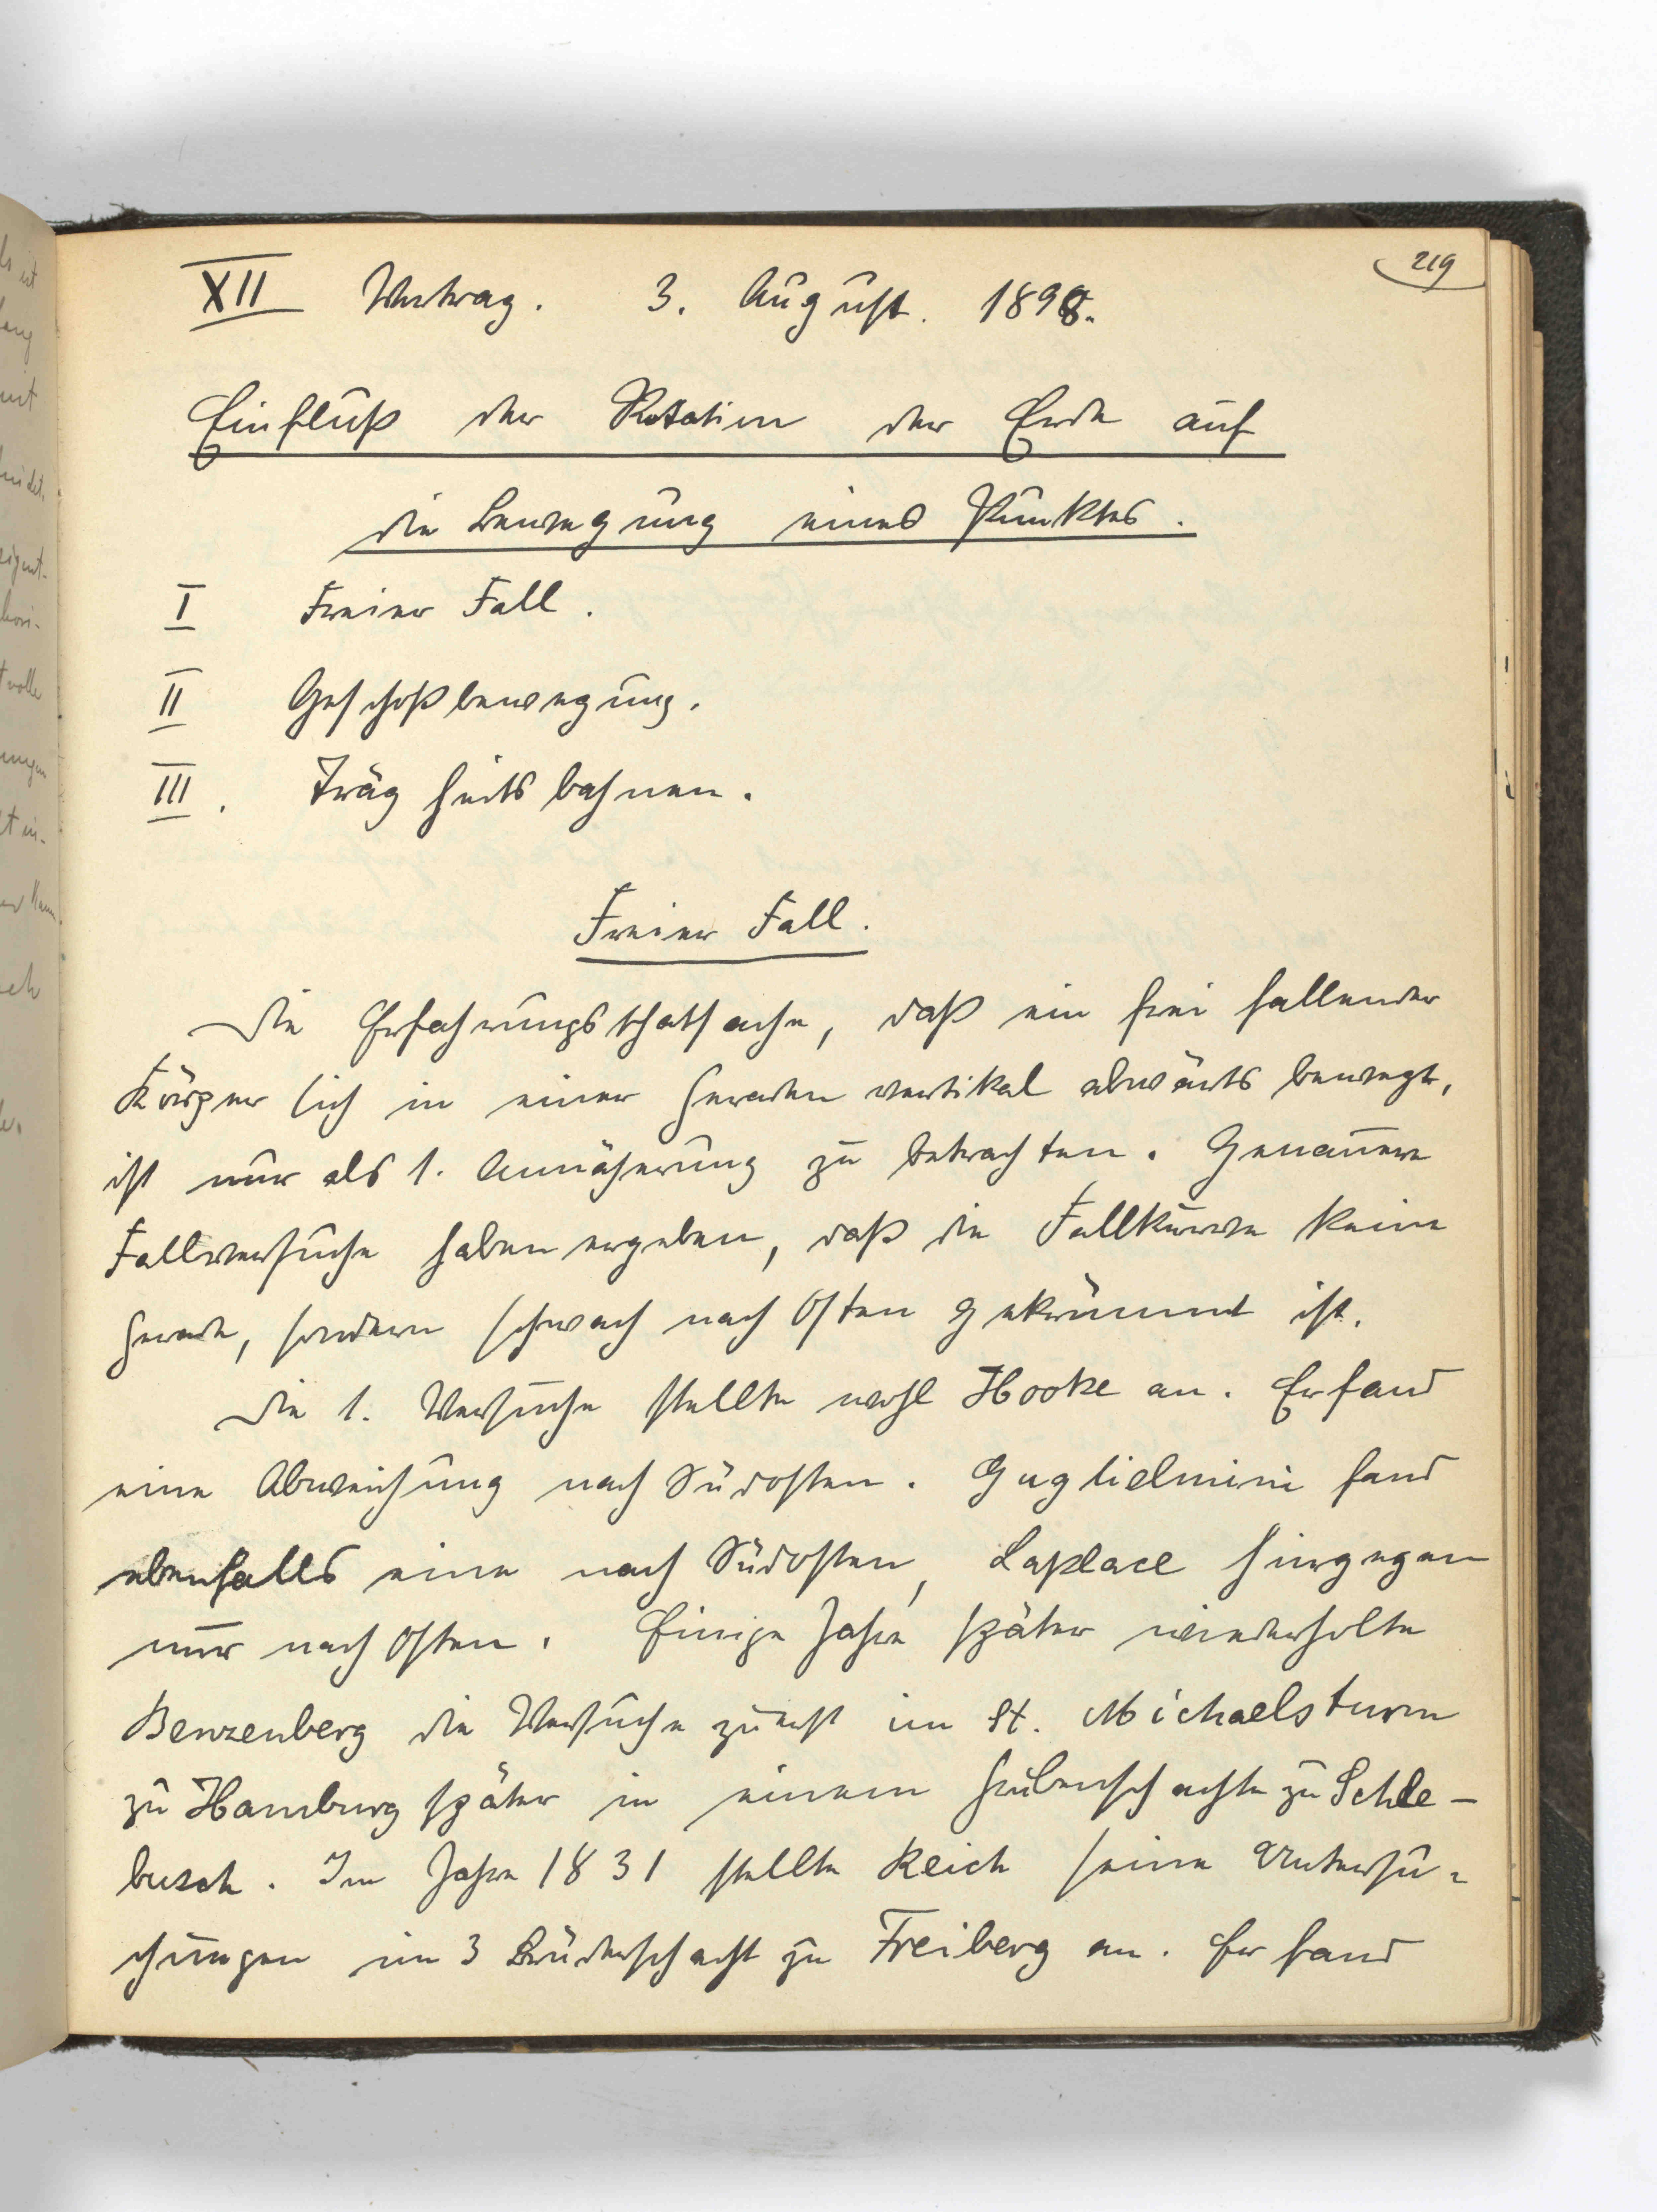 219
XII Vortrag. 3. August. 1898.
Einfluß der Rotation der Erde auf
die Bewegung eines Punktes.
I Freier Fall.
II Geschoßbewegung.
III. Trägheitsbahnen.
Freier Fall.
Die Erfahrungsthatsache, daß ein frei fallender
Körper sich in einer Geraden vertikal abwärts bewegt,
ist nur als 1. Annäherung zu betrachten. Genauere
Fallversuche haben ergeben, daß die Fallkurve keine
Gerade, sondern schwach nach Osten gekrümmt ist.
Die 1. Versuche stellte wohl Hooke an. Er fand
eine Abweichung nach Südosten. Guglielmini fand
ebenfalls eine nach Südosten, Laplace hingegen
nur nach Osten. Einige Jahre später wiederholte
Benzenberg die Versuche zuerst im St. Michaelsturm
zu Hamburg später in einem Grubenschachte zu Schle-
busch. Im Jahre 1831 stellte Reich seine Untersu-
chungen im 3 Brüderschacht zu Freiberg an. Er fand